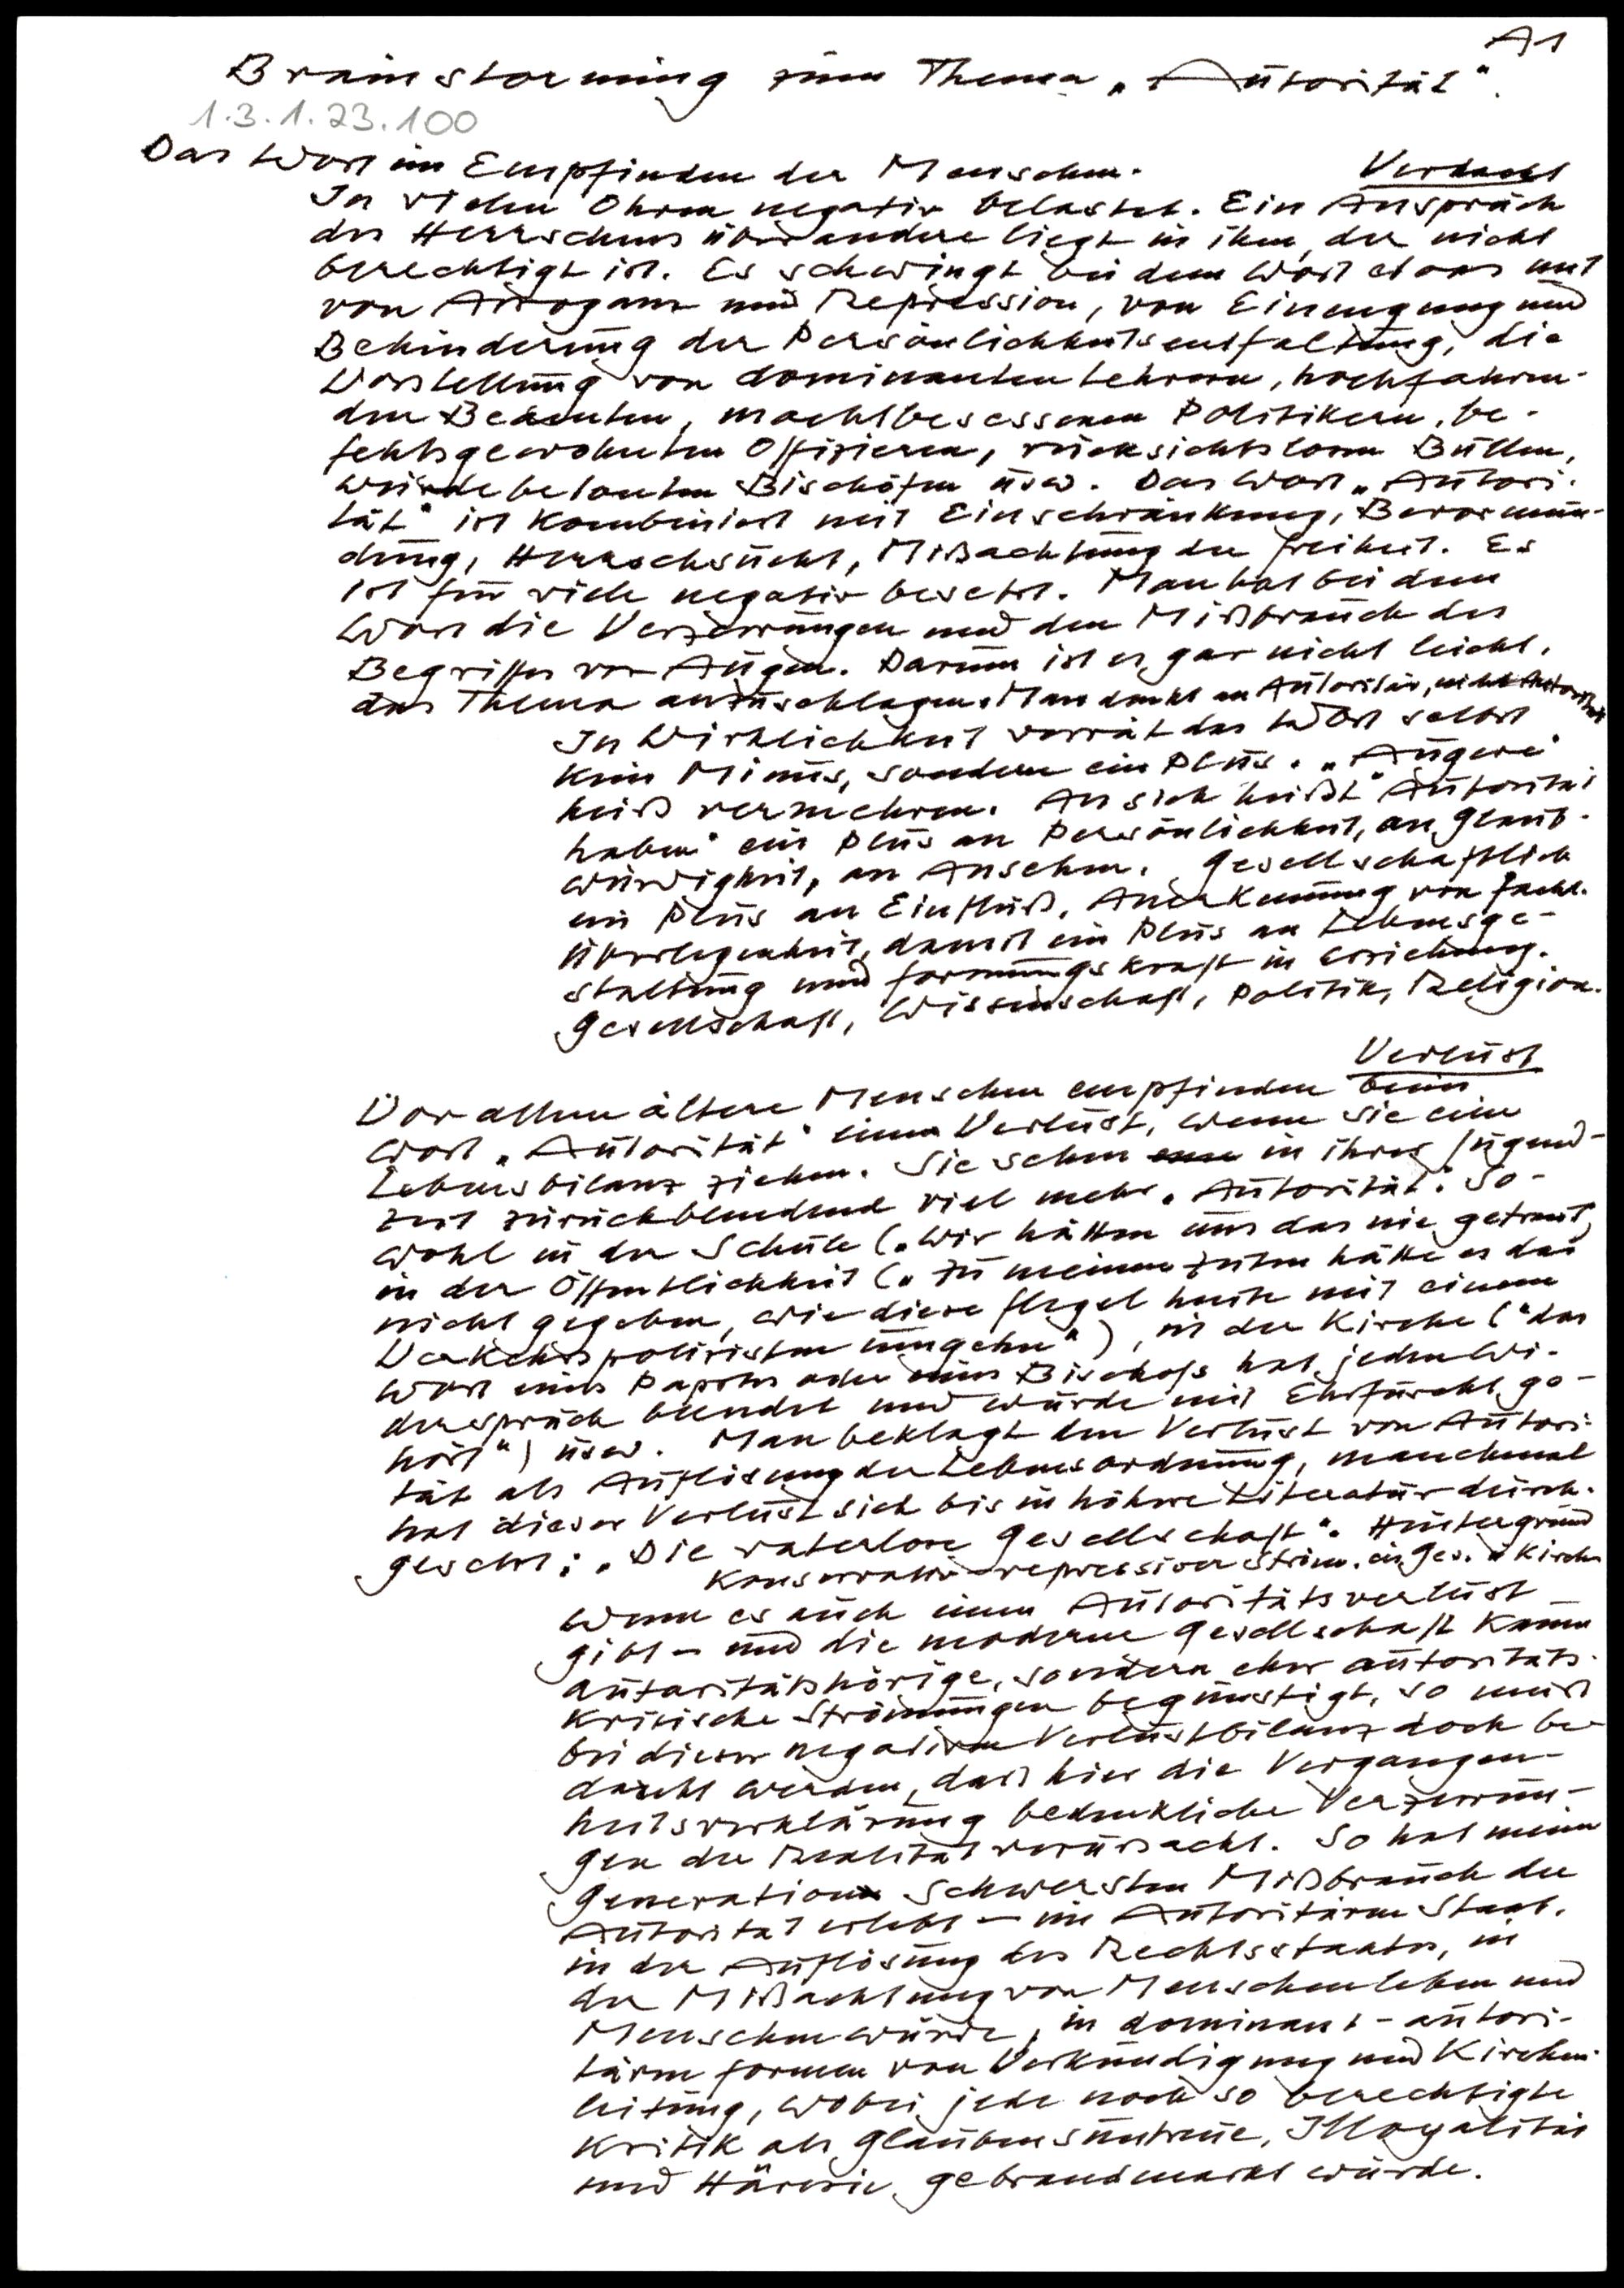 A1
Brainstorming zum Thema „Autorität".
1.3.1.23.100
Das Wort im Empfinden der Menschen.
Verdacht
In vielen Ohren negativ belastet. Ein Anspruch
des Herrschens über andere liegt in ihm, der nicht
berechtigt ist. Es schwingt bei dem Wort etwas mit
von Arroganz und Repression, von Einengung und
Behinderung der Persönlichkeitsentfaltung, die
Vorstellung von dominanten Lehrern, hochfahren-
den Beamten, machtbesessenen Politikern, be-
fehlsgewohnten Offizieren, rücksichtslosen Bullen,
würdebetonten Bischöfen usw. Das Wort „Autori-
tät" ist kombiniert mit Einschränkung, Bevormun-
dung, Herrschsucht, Mißachtung der Freiheit. Es
ist für viele negativ besetzt. Man hat bei dem
Wort die Verzerrungen und den Mißbrauch des
Begriffes vor Augen. Darum ist es gar nicht leicht,
das Thema anzuschlagen. Man denkt an Autoritär, nicht Autorität
In Wirklichkeit verrät das Wort selbst
kein Minus, sondern ein Plus. „Augere"
heiß vermehren. An sich heißt „Autorität
haben" ein Plus an Persönlichkeit, an Glaub-
würdigkeit, an Ansehen. Gesellschaftlich
ein Plus an Einfluß, Anerkennung von fachl.
Überlegenheit, damit ein Plus an Lebensge-
staltung und Formungskraft in Erziehung.
Gesellschaft, Wissenschaft, Politik, Religion.
Verlust
Vor allem ältere Menschen empfinden beim
Wort „Autorität" einen Verlust, wenn sie eine
Lebensbilanz ziehen. Sie sehen in ihrer Jugend-
zeit zurückblendend viel mehr „Autorität". So-
wohl in der Schule („Wir hätten uns das nie getraut,
in der Öffentlichkeit („Zu meinen Zeiten hätte es das
nicht gegeben, wie diese Flegel heute mit einem
Verkehrspolizisten umgehen"), in der Kirche („das
Wort eines Papstes oder eines Bischofs hat jeden Wi-
derspruch beendet und wurde mit Ehrfurcht ge-
hört") usw. Man beklagt den Verlust von Autori-
tät als Auflösung der Lebensordnung, manchmal
hat dieser Verlust sich bis in höhere Literatur durch-
gesetzt: „Die vaterlose Gesellschaft". Hintergrund
konservativ-repressiver Ström. in Ges. u Kirche
Wenn es auch einen Autoritätsverlust
gibt – und die moderne Gesellschaft kaum
autoritätshörige, sondern eher autoritäts-
kritische Strömungen begünstigt, so muß
bei dieser negativen Verlustbilanz doch be-
dacht werden, daß hier die Vergangen-
heitsverklärung bedenkliche Verzerrun-
gen der Realität verursacht. So hat meine
Generation schwersten Mißbrauch der
Autorität erlebt – im Autoritären Staat,
in der Auflösung des Rechtsstaates, in
der Mißachtung von Menschenleben und
Menschenwürde, in dominant-autori-
tären Formen von Verkündigung und Kirchen-
leitung, wobei jede noch so berechtigte
Kritik als Glaubensuntreue, Illoyalität
und Häresie gebrandmarkt wurde.